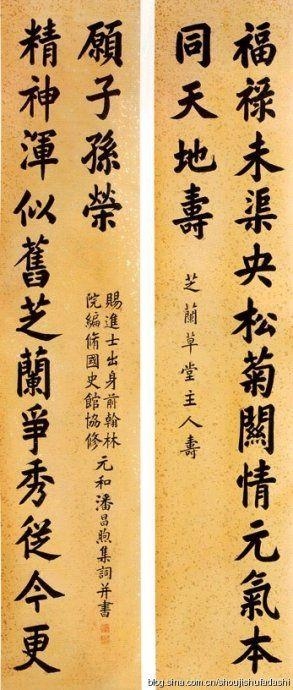 福祿未渠央松菊關情元氣本
同天地壽
芝蘭草堂主人壽
精神渾似舊芝蘭爭秀從今更
願子孫榮
賜進士出身前翰林
院編脩國史館協修
元和潘昌煦集詞并書
blog.sina.com.cn/shoujishufadashi